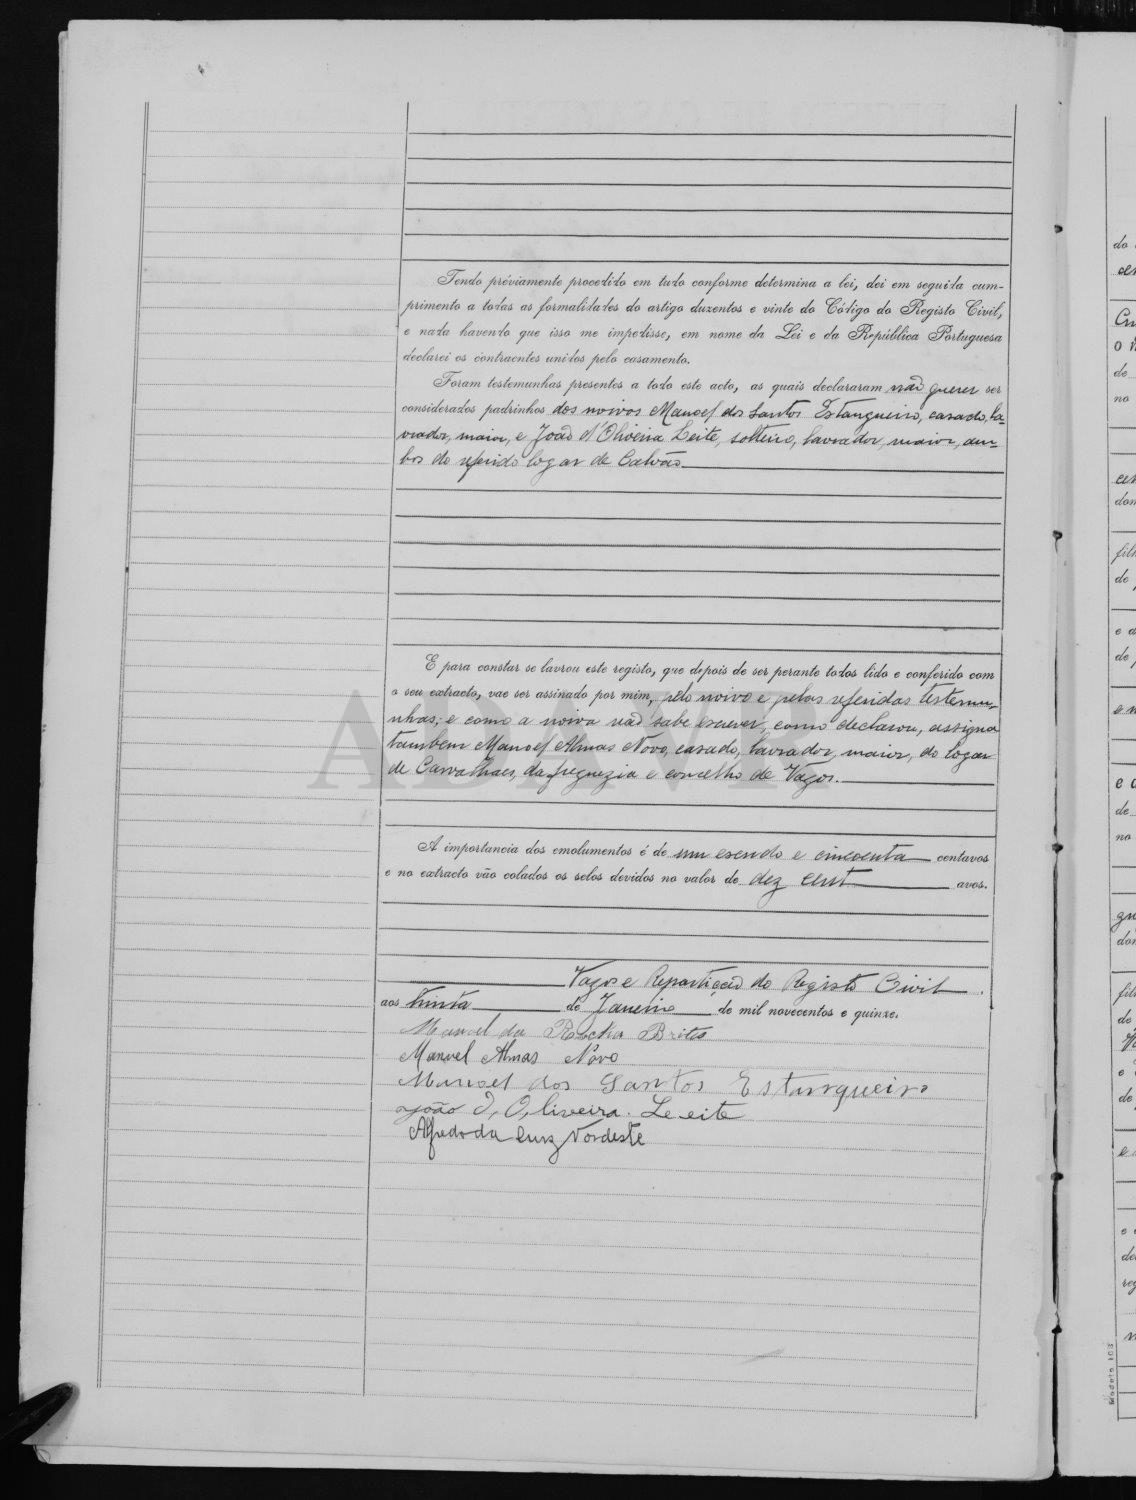 Tendo préviamente procedido em tudo conforme determina a lei, dei em seguida cum-
primento a todas as formalidades do artigo duzentos e vinte do Código do Registo Civil,
e nada havendo que isso me impedisse, em nome da Lei e da República Portuguesa
declarei os contraentes unidos pelo casamento.
Foram testemunhas presentes a todo este acto, as quais declararam não querer ser
considerados padrinhos dos noivos Manoel dos Santos Estangueiro, casado, la-
vrador, maior, e João d'Oliveira Leite, solteiro, lavrador, maior, am-
bos do referido logar de Calvão
E para constar se lavrou este registo, que depois de ser perante todos lido e conferido com
o seu extracto, vae ser assinado por mim, pelo noivo e pelas referidas testemu-
nhas; e como a noiva não sabe escrever, como declarou, assigna
tambem Manoel Almas Novo, casado, lavrador, maior, do logar
de Carvalhaes, da freguezia e concelho de Vagos.
A importancia dos emolumentos é de um escudo e cincoenta centavos
e no extracto vão colados os selos devidos no valor de dez cent avos.
Vagos e Repartição do Registo Civil
aos trinta de Janeiro de mil novecentos e quinze.
Manoel da Rocha Brites
Manuel Almas Novo
Manoel dos Santos Estangueiro
João d'Oliveira Leeite
Alfredo da Cruz Nordeste
ADAVR
do
Cu
o
de
no
cen
don
filh
de
e
de
e
de
no
gu
don
filh
de
e
de
e
de
reg
Modelo 103